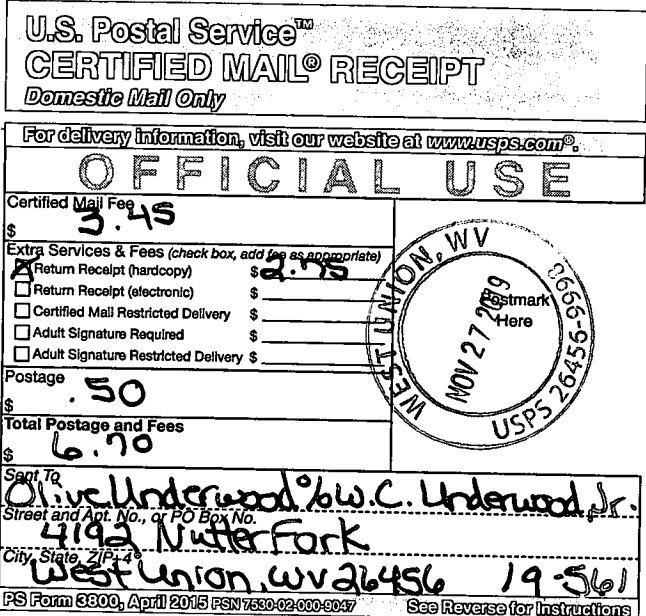 U.S. Postal Service™
CERTIFIED MAIL® RECEIPT
Domestic Mail Only
For delivery information, visit our website at www.usps.com®.
OFFICIAL USE
Certified Mail Fee
$ 3.45
Extra Services & Fees (check box, add fee as appropriate)
Return Receipt (hardcopy) $ 2.75
Return Receipt (electronic) $
Certified Mail Restricted Delivery $
Adult Signature Required $
Adult Signature Restricted Delivery $
Postage
$ .50
Total Postage and Fees
$ 6.70
Postmark
Here
WEST UNION, WV
NOV 27 2019
USPS 26456-9998
Sent To
Olive Underwood % W.C. Underwood, Jr.
Street and Apt. No., or PO Box No.
4192 Nutter Fork
City, State, ZIP+4®
West Union, WV 26456 19-561
PS Form 3800, April 2015 PSN 7530-02-000-9047 See Reverse for Instructions